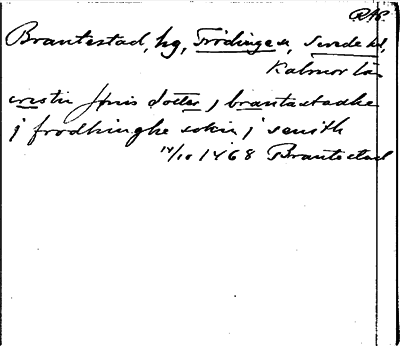 RAp.
Brantestad, hg, Frödinge sn, Sevede hd,
Kalmar län
cristin Jønis dotter j brantastadhe
j frodhinghe sokn j sewith
14/10 1468 Brantestad